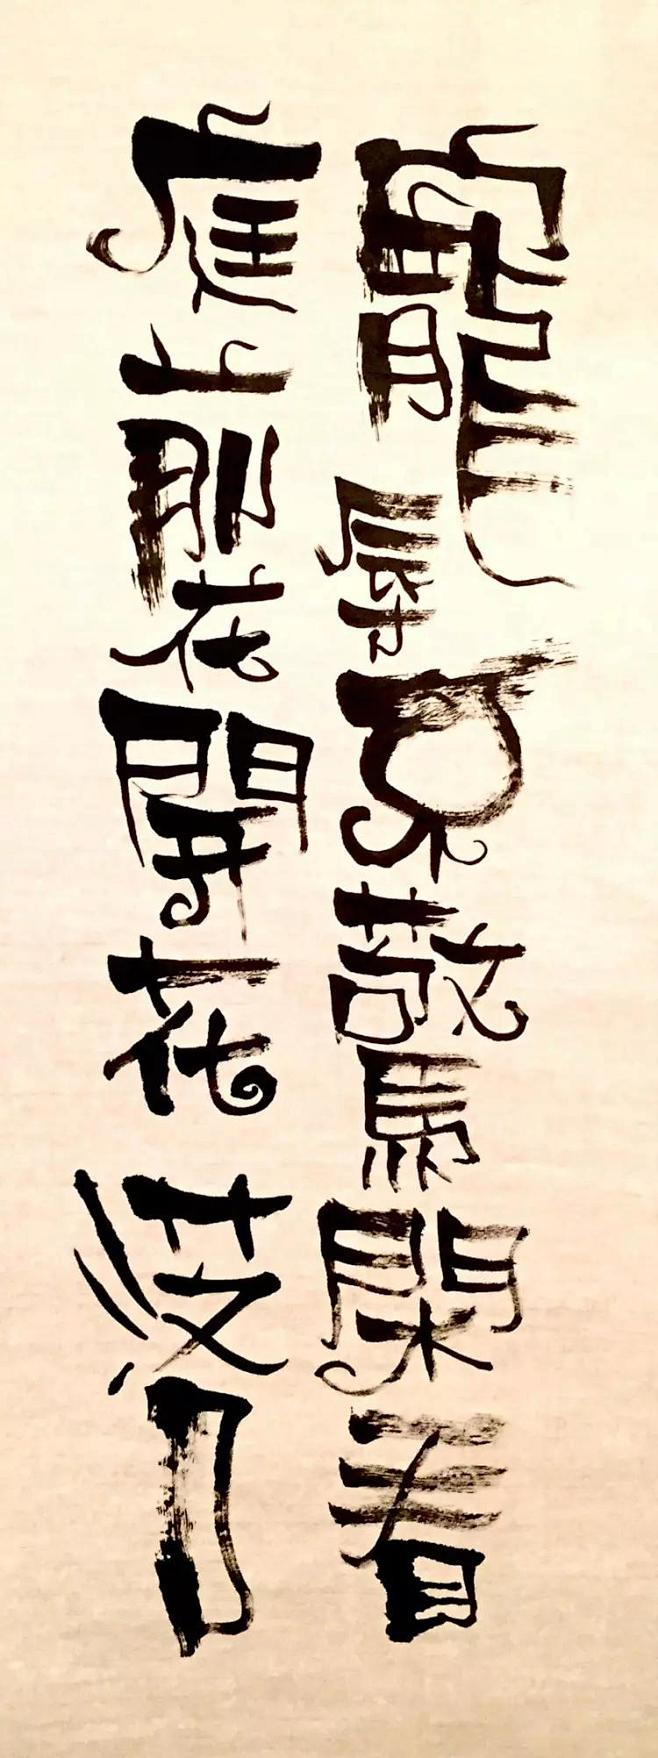 寵辱不驚閑看
庭前花開花落